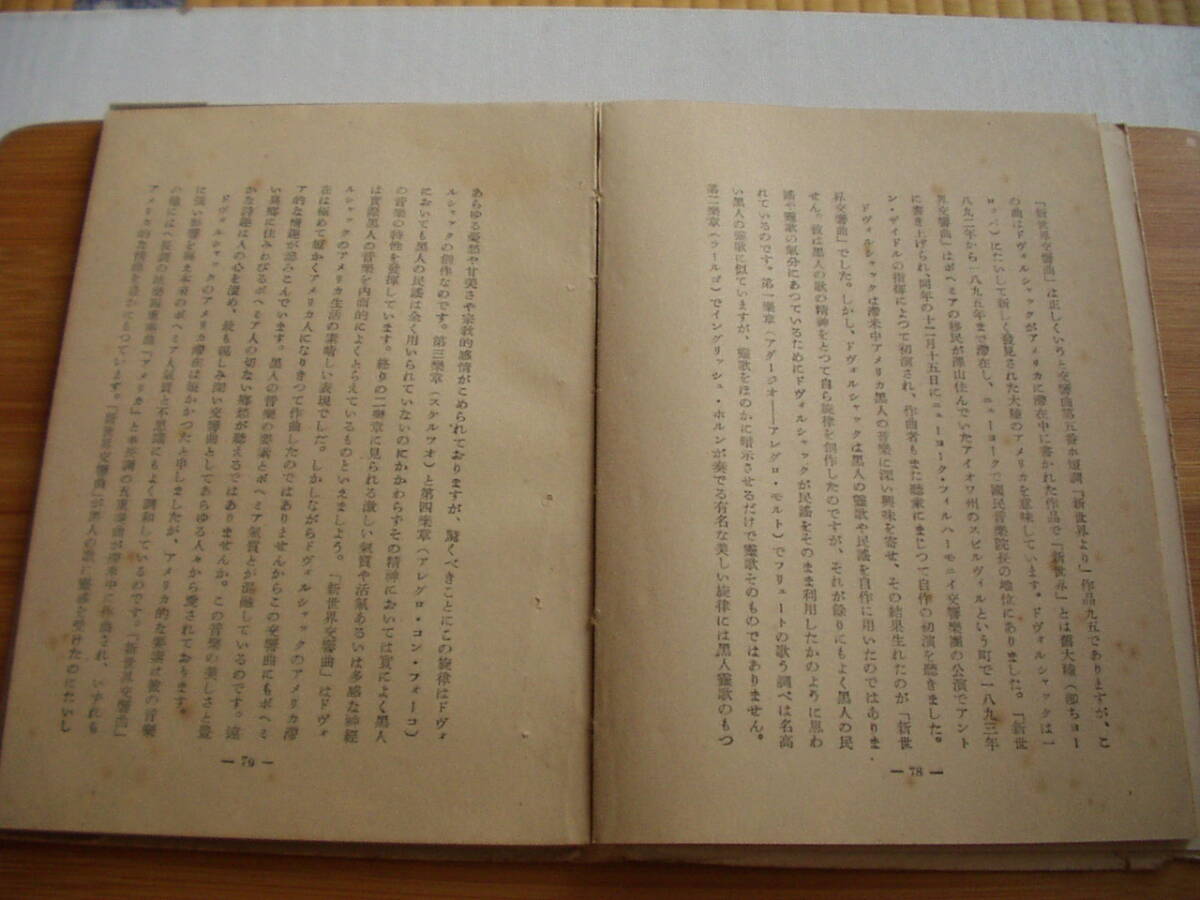 「新世界交響曲」は正しくいうと交響曲第五番ホ短調「新世界より」作品九五でありますが、こ
の曲はドヴォルシャックがアメリカに滞在中に書かれた作品で「新世界」とは舊大陸（卽ちヨー
ロッパ）にたいして新しく發見された大陸のアメリカを意味しています。ドヴォルシャックは一
八九二年から一八九五年まで滞在し、ニューヨークで國民音樂院長の地位にありました。「新世
界交響曲」はボヘミアの移民が澤山住んでいたアイオワ州のスピルヴィルという町で一八九三年
に書き上げられ、同年の十二月十五日にニューヨーク・フィルハーモニイ交響樂團の公演でアント
ン・ザイドルの指揮によつて初演され、作曲者もまた聽衆にまじつて自作の初演を聽きました。
ドヴォルシャックは滯米中アメリカ黒人の音樂に深い興味を寄せ、その結果生れたのが「新世
界交響曲」でした。しかし、ドヴォルシャックは黒人の靈歌や民謠を自作に用いたのではありま
せん。彼は黒人の歌の精神をとつて自ら旋律を創作したのですが、それが餘りにもよく黒人の民
謠や靈歌の氣分にあつているためにドヴォルシャックが民謠をそのまま利用したかのように思わ
れているのです。第一樂章（アダージオ——アレグロ・モルト）でフリュートの歌う調べは名高
い黒人の靈歌に似ていますが、靈歌をほのかに暗示させるだけで靈歌そのものではありません。
第二樂章（ラールゴ）でイングリッシュ・ホルンが奏でる有名な美しい旋律には黒人靈歌のもつ
— 78 —
あらゆる憂愁や甘美さや宗敎的感情がこめられておりますが、驚くべきことにこの旋律はドヴォ
ルシャックの創作なのです。第三樂章（スケルツオ）と第四樂章（アレグロ・コン・フォーコ）
においても黒人の民謠は全く用いられていないのにかかわらずその精神においては實によく黒人
の音樂の特性を發揮しています。終りの二樂章に見られる激しい氣質や活氣あるいは多感な神經
は實際黒人の音樂を内面的によくとらえているものといえましよう。「新世界交響曲」はドヴォ
ルシャックのアメリカ生活の素晴しい表現でした。しかしながらドヴォルシャックのアメリカ滯
在は極めて短かくアメリカ人になりきつて作曲したのではありませんからこの交響曲にもボヘミ
ア的な情趣が滲みこんでいます。黒人の音樂の要素とボヘミア氣質とが混融しているのです。遠
い異郷に住みわびるボヘミア人の切ない郷愁が聽えるではありませんか。この音樂の美しさと豐
かな詩趣は人の心を溫め、最も親しみ深い交響曲としてあらゆる人々から愛されております。
ドヴォルシャックのアメリカ滯在は短かかつたと申しましたが、アメリカ的な要素は彼の音樂
に強い影響を與え本來のボヘミア人氣質と不思議にもよく調和しているのです。「新世界交響曲」
の他にはヘ長調の絃樂四重奏曲「アメリカ」と變ホ調の五重奏曲が滯米中に作曲され、いずれも
アメリカ的な情緖を豐かにもつています。「新世界交響曲」が黒人の歌に靈感を受けたのにたいし
— 79 —